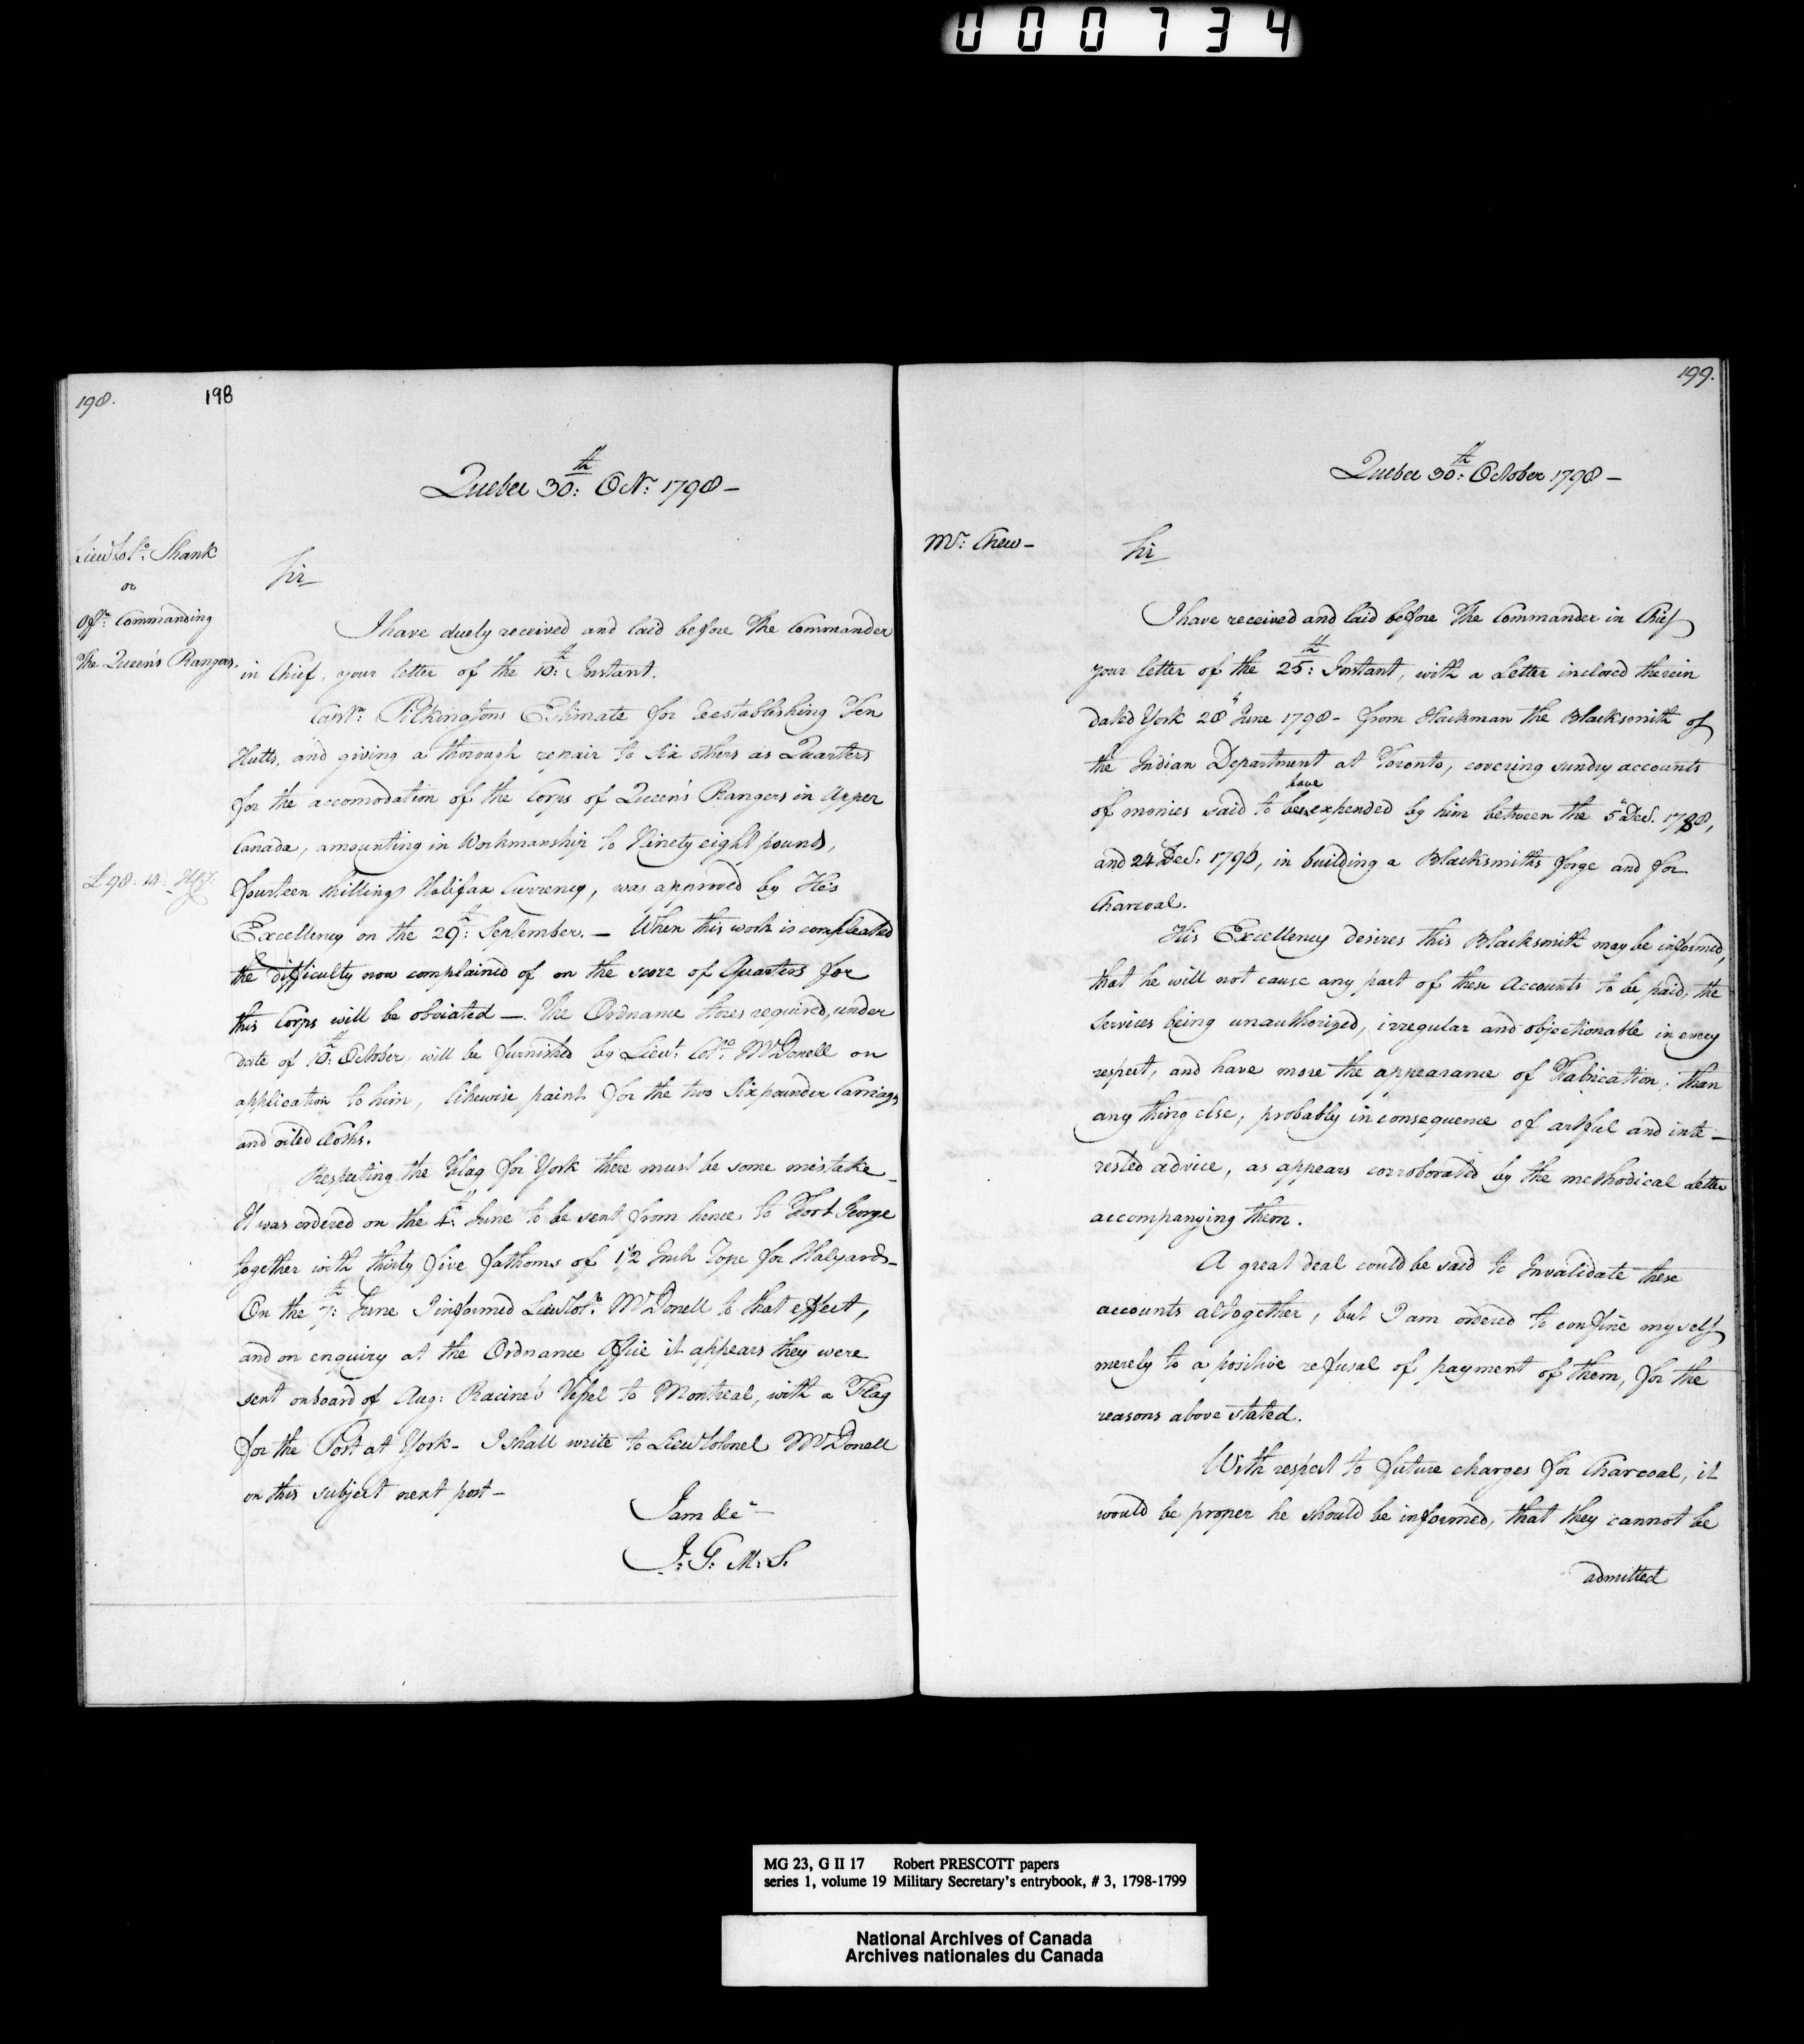 000734
198.
198
Quebec 30th: Octr: 1798 –
Lieut Colo: Shank
or
Offr: Commanding
The Queen's Rangers.
Sir
I have duely received and laid before The Commander
in Chief, your letter of the 10th: Instant.
Captn: Pilkingtons Estimate for reestablishing Ten
Hutts, and giving a thorough repair to six others as Quarters
for the accomodation of the Corps of Queen's Rangers in Upper
Canada, amounting in Workmanship to Ninety eight pounds,
£98: 14: Hx:
fourteen shillings Halifax Currency, was approved by His
Excellency on the 29th: September. – When this work is compleated
the difficulty now complained of on the score of Quarters for
this Corps will be obviated –. The Ordnance Stores required, under
date of 10th: October, will be furnished by Lieut: Colo: McDonell on
application to him, likewise paint for the two Six pounder Carriages
and oiled Cloths.
Respecting the Flag for York there must be some mistake –
It was ordered on the 4th: June to be sent from hence to Fort George
together with thirty five fathoms of 1 1/2 Inch Rope for Halyards –
On the 7th: June I informed Lieut Colo: McDonell to that effect,
and on enquiry at the Ordnance Office it appears they were
sent onboard of Aug: Racine's Vessel to Montreal, with a Flag
for the Post at York – I shall write to Lieut Colonel McDonell
on this subject next post –
I am &c –
J: G: M: S.
199.
Quebec 30th: October 1798 –
Mr: Chew –
Sir
I have received and laid before The Commander in Chief
your letter of the 25th: Instant, with a Letter inclosed therein
dated York 28th June 1798 – from Hackman the Blacksmith of
the Indian Department at Toronto, covering sundry accounts
have
of monies said to been expended by him between the 5th Decr. 1798,
and 24 Decr: 1796, in building a Blacksmiths forge and for
Charcoal.
His Excellency desires this Blacksmith may be informed,
that he will not cause any part of these Accounts to be paid, the
Services being unauthorized, irregular and objectionable in every
respect, and have more the appearance of Fabrication, than
any thing else, probably in consequence of artful and inte –
rested advice, as appears corroborated by the methodical Letter
accompanying them.
A great deal could be said to Invalidate these
accounts altogether, but I am ordered to confine myself
merely to a positive refusal of payment of them, for the
reasons above stated.
With respect to future charges for Charcoal, it
would be proper he should be informed, that they cannot be
admitted
MG 23, G II 17 Robert PRESCOTT papers
series 1, volume 19 Military Secretary's entrybook, # 3, 1798-1799
National Archives of Canada
Archives nationales du Canada